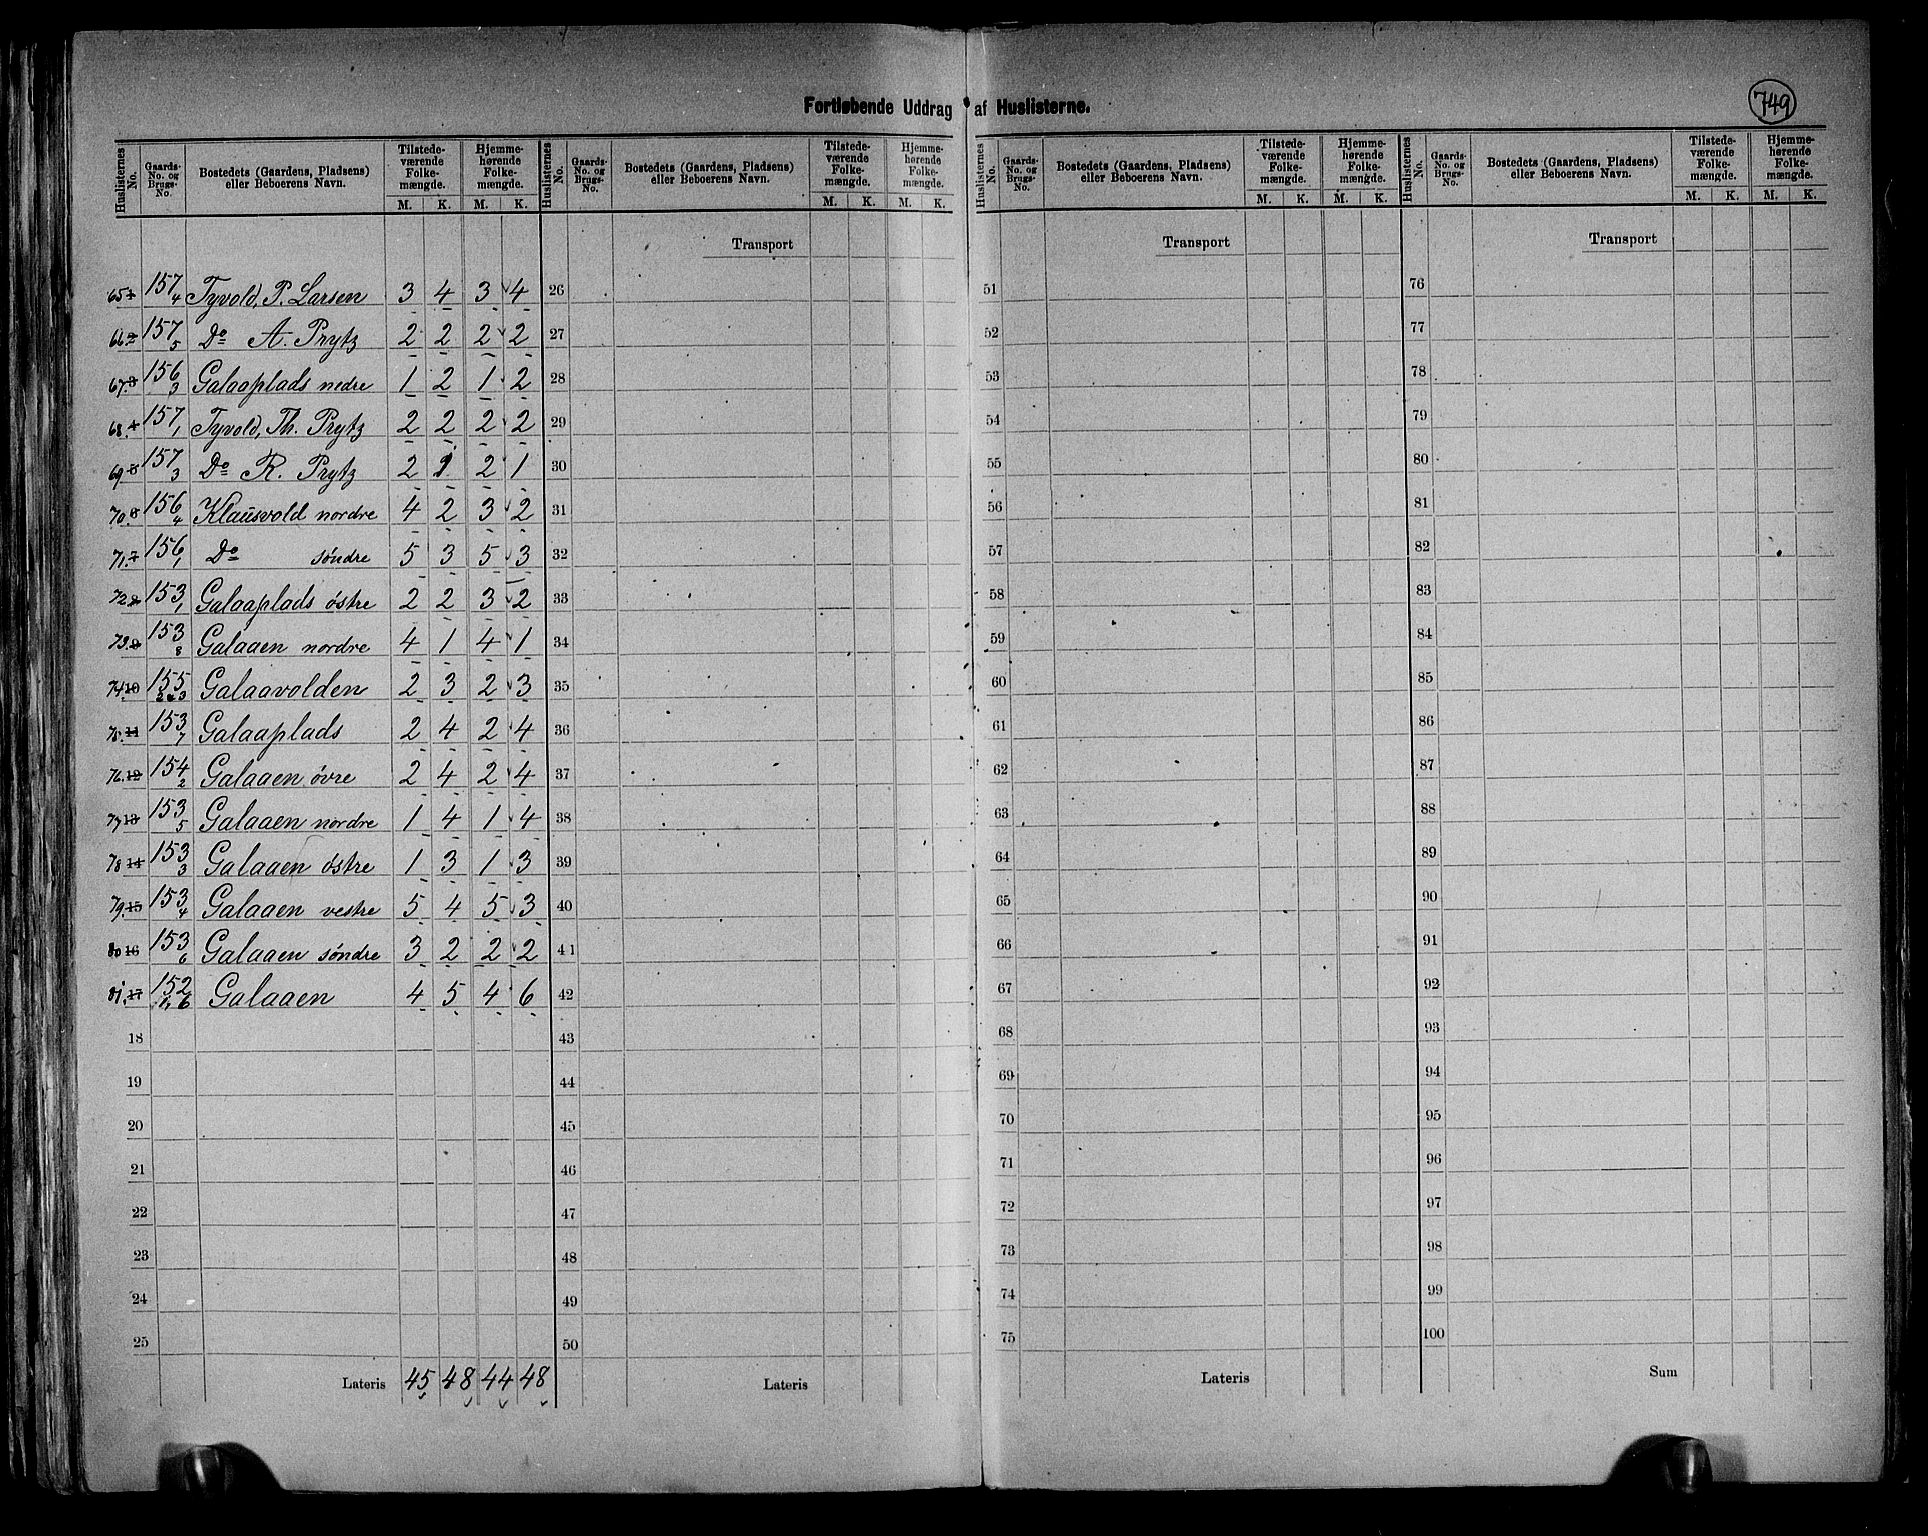 749
Fortløbende Uddrag af Huslisterne.
Huslisternes No. | Gaards-No. og Brugs-No. | Bostedets (Gaardens, Pladsens) eller Beboerens Navn. | Tilstede-værende Folke-mængde. M. K. | Hjemme-hørende Folke-mængde. M. K.
Huslisternes No. | Gaards-No. og Brugs-No. | Bostedets (Gaardens, Pladsens) eller Beboerens Navn. | Tilstede-værende Folke-mængde. M. K. | Hjemme-hørende Folke-mængde. M. K.
Huslisternes No. | Gaards-No. og Brugs-No. | Bostedets (Gaardens, Pladsens) eller Beboerens Navn. | Tilstede-værende Folke-mængde. M. K. | Hjemme-hørende Folke-mængde. M. K.
Huslisternes No. | Gaards-No. og Brugs-No. | Bostedets (Gaardens, Pladsens) eller Beboerens Navn. | Tilstede-værende Folke-mængde. M. K. | Hjemme-hørende Folke-mængde. M. K.
Transport Transport Transport
65 1 157/4 Tyvold, P. Larsen 3 4 3 4 26 51 76
66 2 157/5 Do A. Prytz 2 2 2 2 27 52 77
67 3 156/3 Galaaplads nedre 1 2 1 2 28 53 78
68 4 157/1 Tyvold, Th. Prytz 2 2 2 2 29 54 79
69 5 157/3 Do R. Prytz 2 1 2 1 30 55 80
70 6 156/4 Klausvold nordre 4 2 3 2 31 56 81
71 7 156/1 Do søndre 5 3 5 3 32 57 82
72 8 153/1 Galaaplads östre 2 2 3 2 33 58 83
73 9 153/8 Galaaen nordre 4 1 4 1 34 59 84
74 10 155/2 & 3 Galaavolden 2 3 2 3 35 60 85
75 11 153/7 Galaaplads 2 4 2 4 36 61 86
76 12 154/2 Galaaen övre 2 4 2 4 37 62 87
77 13 153/5 Galaaen nordre 1 4 1 4 38 63 88
78 14 153/3 Galaaen östre 1 3 1 3 39 64 89
79 15 153/4 Galaaen vestre 5 4 5 3 40 65 90
80 16 153/6 Galaaen søndre 3 2 2 2 41 66 91
81 17 152 Galaaen 4 5 4 6 42 67 92
18 43 68 93
19 44 69 94
20 45 70 95
21 46 71 96
22 47 72 97
23 48 73 98
24 49 74 99
25 50 75 100
Lateris 45 48 44 48 Lateris Lateris Sum